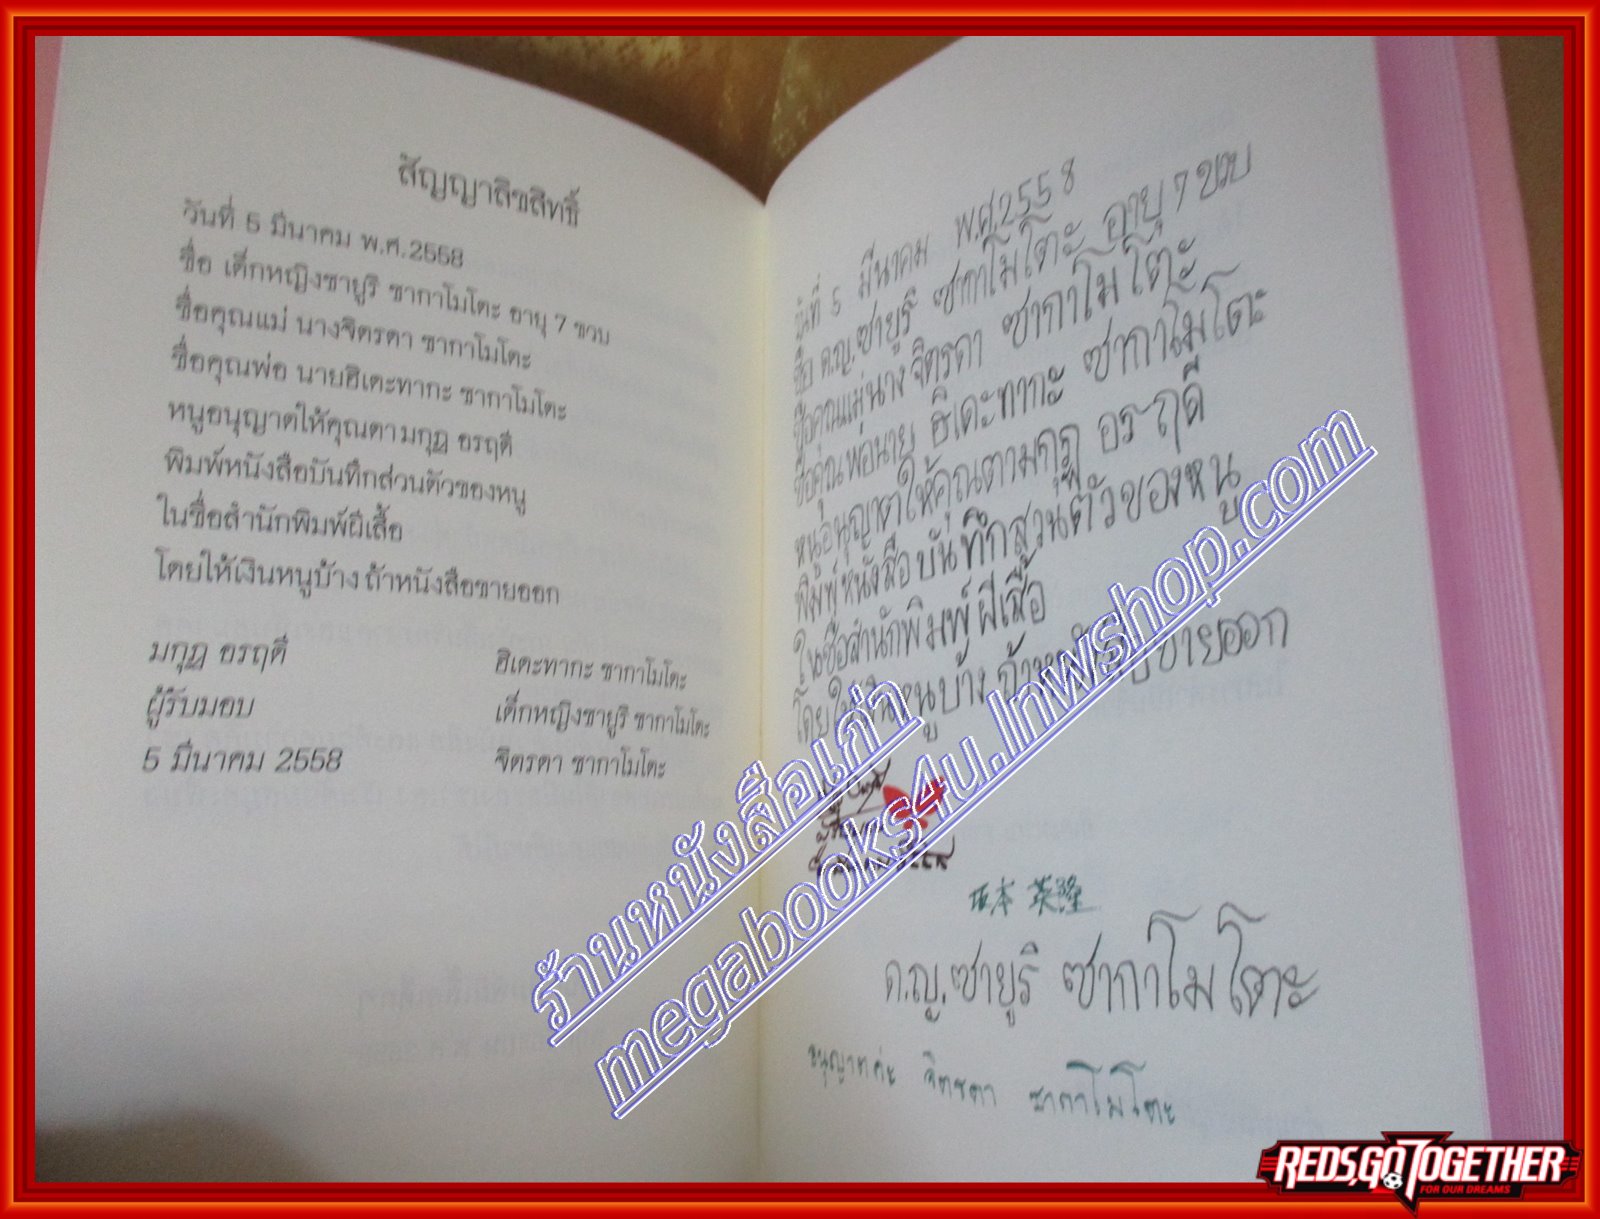 สัญญาลิขสิทธิ์
วันที่ 5 มีนาคม พ.ศ.2558
ชื่อ เด็กหญิงซายูริ ซากาโมโตะ อายุ 7 ขวบ
ชื่อคุณแม่ นางจิตรดา ซากาโมโตะ
ชื่อคุณพ่อ นายฮิเดะทากะ ซากาโมโตะ
หนูอนุญาตให้คุณตามกุฏ อรฤดี
พิมพ์หนังสือบันทึกส่วนตัวของหนู
ในชื่อสำนักพิมพ์ผีเสื้อ
โดยให้เงินหนูบ้าง ถ้าหนังสือขายออก
มกุฏ อรฤดี
ผู้รับมอบ
5 มีนาคม 2558
ฮิเดะทากะ ซากาโมโตะ
เด็กหญิงซายูริ ซากาโมโตะ
จิตรดา ซากาโมโตะ
วันที่ 5 มีนาคม พ.ศ.2558
ชื่อ ด.ญ.ซายูริ ซากาโมโตะ อายุ 7 ขวบ
ชื่อคุณแม่นาง จิตรดา ซากาโมโตะ
ชื่อคุณพ่อนาย ฮิเดะทากะ ซากาโมโตะ
หนูอนุญาตให้คุณตามกุฏ อรฤดี
พิมพ์หนังสือบันทึกส่วนตัวของหนู
ในชื่อสำนักพิมพ์ผีเสื้อ
โดยให้เงินหนูบ้าง ถ้าหนังสือขายออก
坂本 英隆
ด.ญ.ซายูริ ซากาโมโตะ
อนุญาตค่ะ จิตรดา ซากาโมโตะ
ร้านหนังสือเก่า
megabooks4u.lnwshop.com
REDS,GO TOGETHER
FOR OUR DREAMS